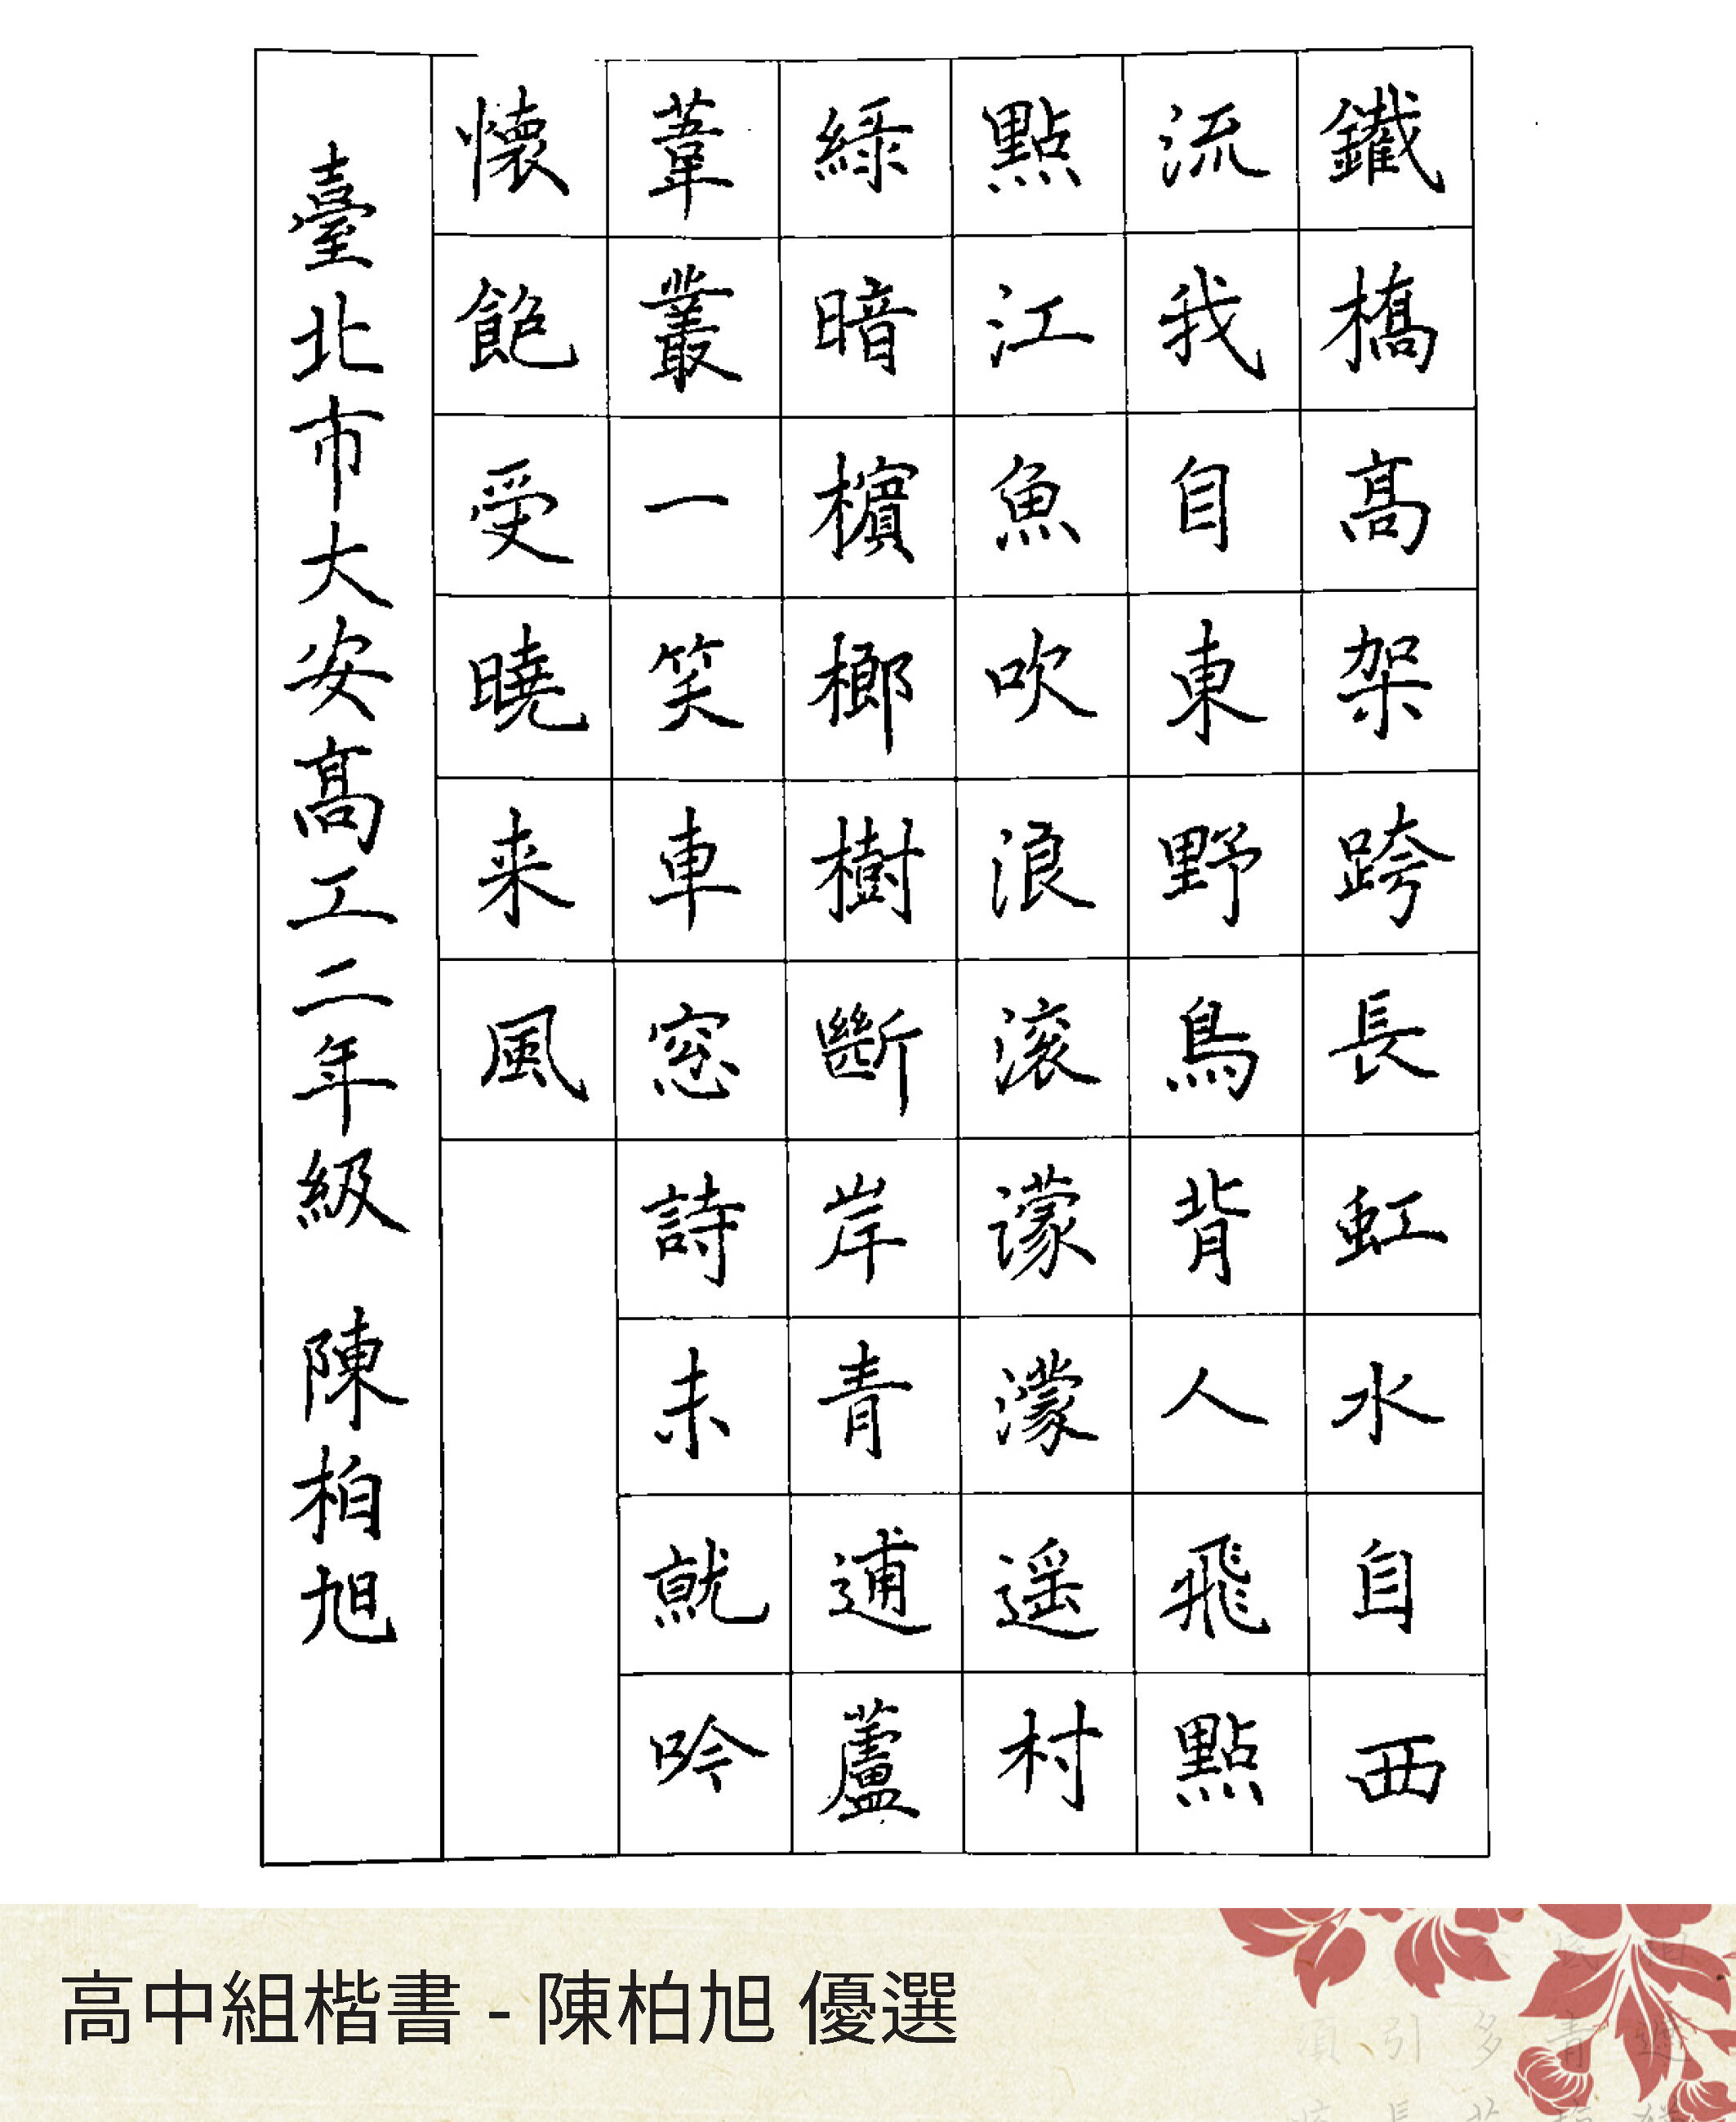 鐵橋高架跨長虹水自西
流我自東野鳥背人飛點
點江魚吹浪滾濛濛遥村
綠暗檳榔樹斷岸青逋蘆
葦叢一笑車窓詩未就吟
懷飽受曉来風
臺北市大安高工二年級 陳柏旭
高中組楷書 - 陳柏旭 優選